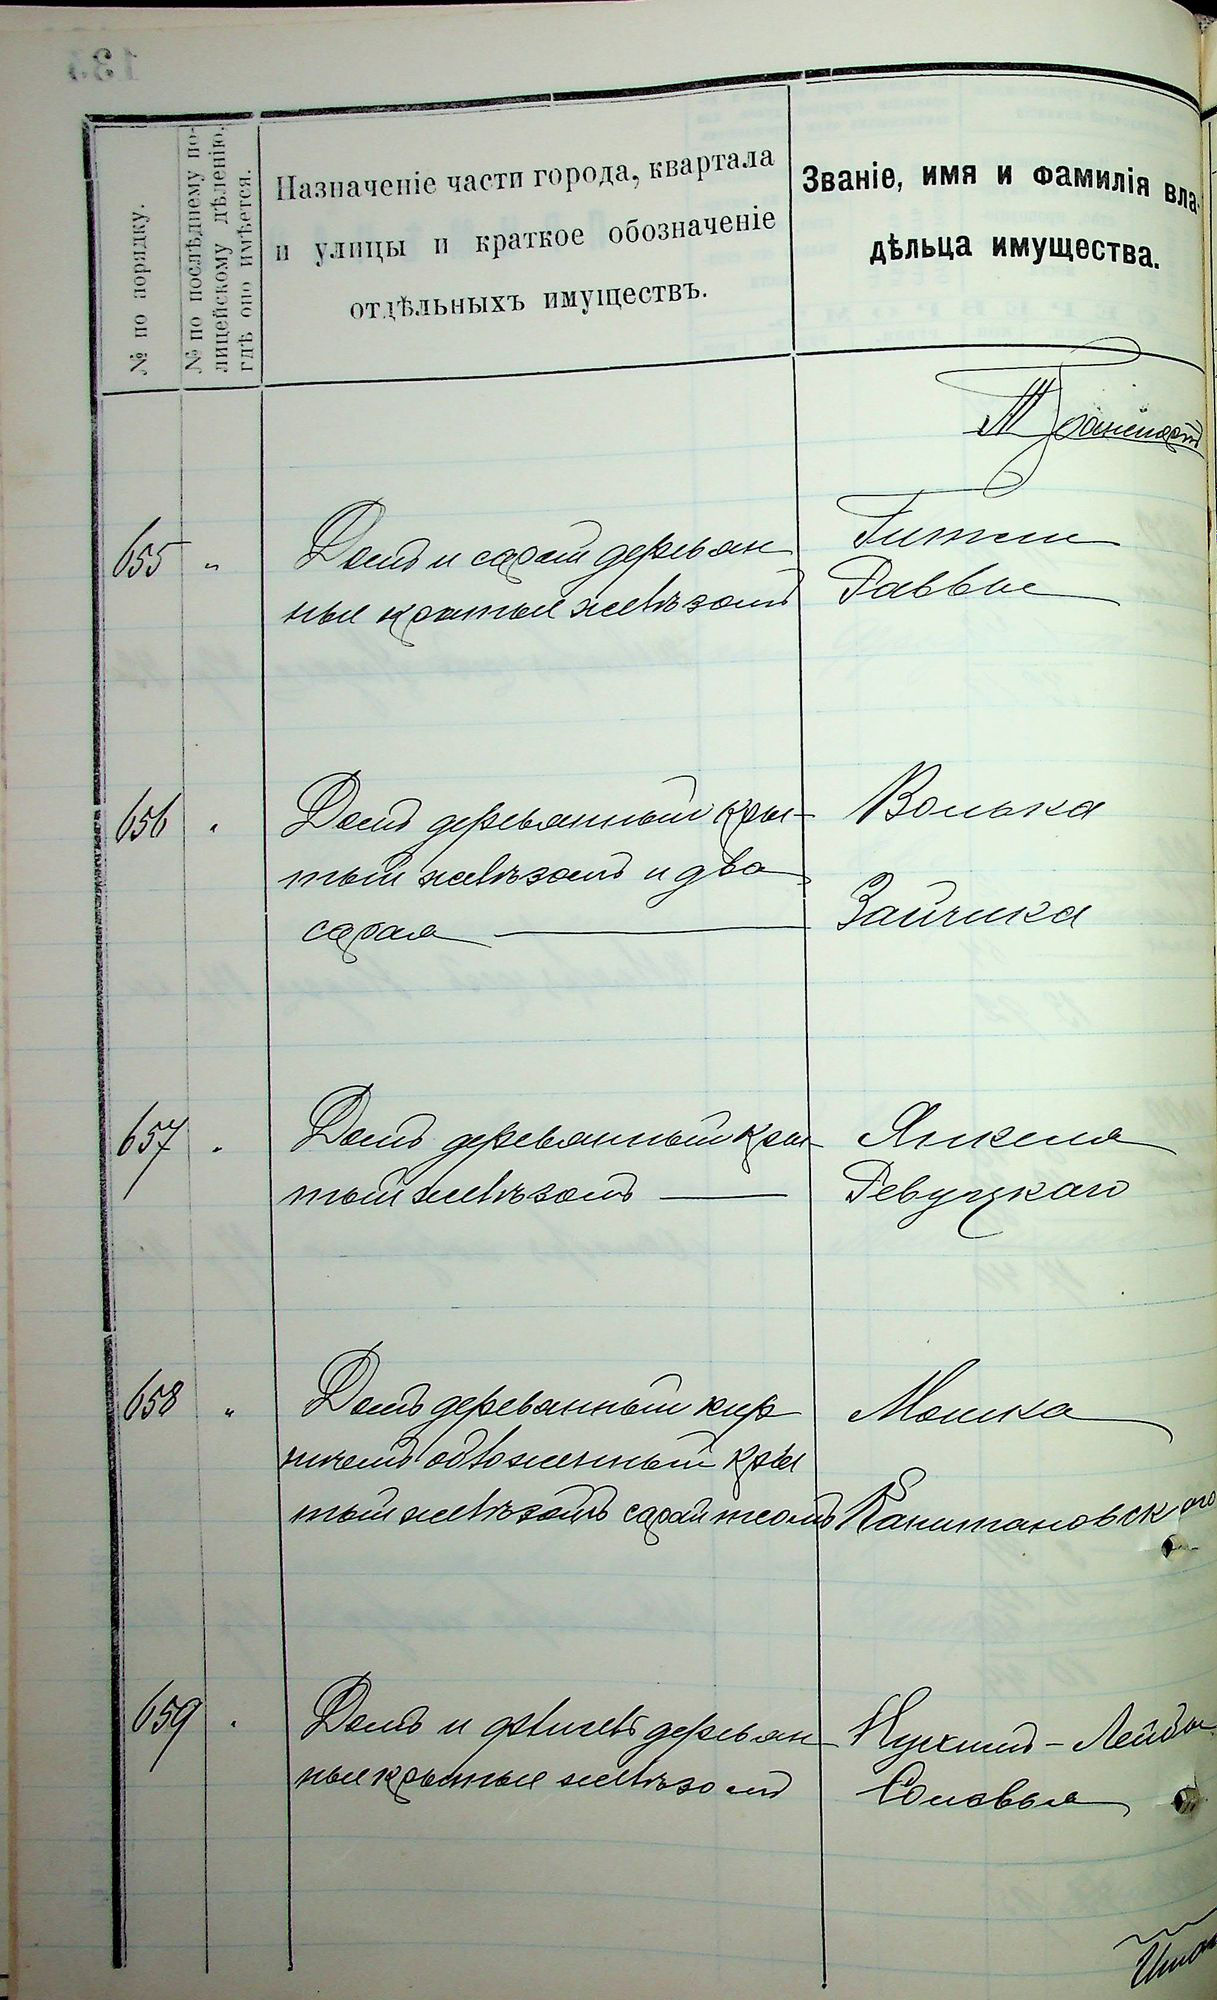 № по порядку.
№ по послѣднему по-
лицейскому дѣленію,
гдѣ оно имѣется.
Назначеніе части города, квартала
и улицы и краткое обозначеніе
отдѣльныхъ имуществъ.
Званіе, имя и фамилія вла-
дѣльца имущества.
Транспортъ
655 „ Домъ и сарай деревян-
ные крытые желѣзомъ
Гитки
Раввы
656 „ Домъ деревянный кры-
тый желѣзомъ и два
сарая
Волька
Зайчика
657 „ Домъ деревянный кры-
тый желѣзомъ
Янкеля
Ревуцкаго
658 „ Домъ деревянный кир
пичемъ обложенный кры
тый желѣзомъ сарай
Мошка
Капитановскаго
659 „ Домъ и флигель деревян-
ные крытые желѣзомъ
Нухимъ-Лейбы
Соловья